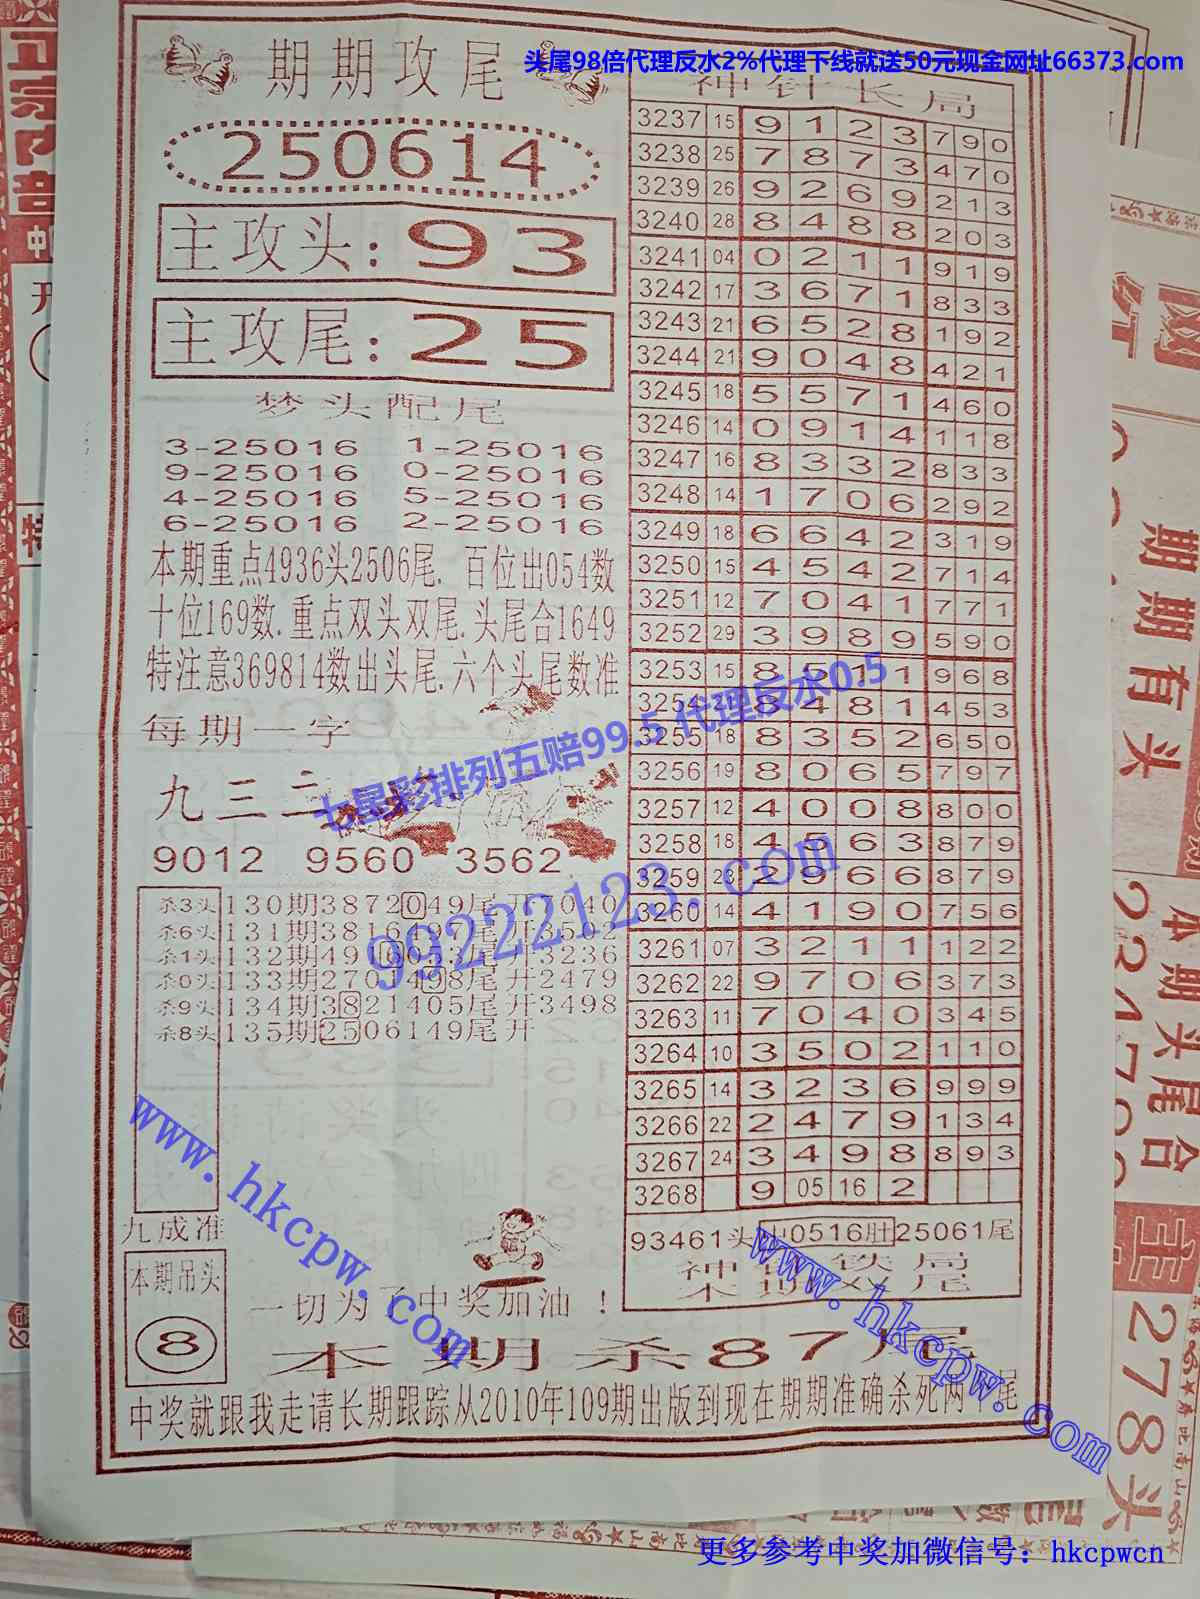 头尾98倍代理反水2%代理下线就送50元现金网址66373.com
期期攻尾
250614
主攻头:93
主攻尾:25
梦头配尾
3-25016 1-25016
9-25016 0-25016
4-25016 5-25016
6-25016 2-25016
本期重点4936头2506尾. 百位出054数
十位169数.重点双头双尾.头尾合1649
特注意369814数出头尾.六个头尾数准
每期一字
九三二
9012 9560 3562
杀3头 130期3872049尾开7040
杀6头 131期3816497尾开3502
杀1头 132期4916053尾开3236
杀0头 133期2701498尾开2479
杀9头 134期3821405尾开3498
杀8头 135期2506149尾开
九成准
本期吊头
8
一切为了中奖加油!
神针长局
3237 15 9 1 2 3 7 9 0
3238 25 7 8 7 3 4 7 0
3239 26 9 2 6 9 2 1 3
3240 28 8 4 8 8 2 0 3
3241 04 0 2 1 1 9 1 9
3242 17 3 6 7 1 8 3 3
3243 21 6 5 2 8 1 9 2
3244 21 9 0 4 8 4 2 1
3245 18 5 5 7 1 4 6 0
3246 14 0 9 1 4 1 1 8
3247 16 8 3 3 2 8 3 3
3248 14 1 7 0 6 2 9 2
3249 18 6 6 4 2 3 1 9
3250 15 4 5 4 2 7 1 4
3251 12 7 0 4 1 7 7 1
3252 29 3 9 8 9 5 9 0
3253 15 8 5 1 1 9 6 8
3254 21 8 4 8 1 4 5 3
3255 18 8 3 5 2 6 5 0
3256 19 8 0 6 5 7 9 7
3257 12 4 0 0 8 8 0 0
3258 18 4 5 6 3 8 7 9
3259 23 2 9 6 6 8 7 9
3260 14 4 1 9 0 7 5 6
3261 07 3 2 1 1 1 2 2
3262 22 9 7 0 6 3 7 3
3263 11 7 0 4 0 3 4 5
3264 10 3 5 0 2 1 1 0
3265 14 3 2 3 6 9 9 9
3266 22 2 4 7 9 1 3 4
3267 24 3 4 9 8 8 9 3
3268 9 05 16 2
93461头 0516肚 25061尾
本期杀87尾
中奖就跟我走请长期跟踪从2010年109期出版到现在期期准确杀死两个尾
七星彩排列五赔99.5 代理反水0.5
99222123.com
www.hkcpw.com
www.hkcpw.com
期期有头
本期头尾合
主
278头
更多参考中奖加微信号：hkcpwcn